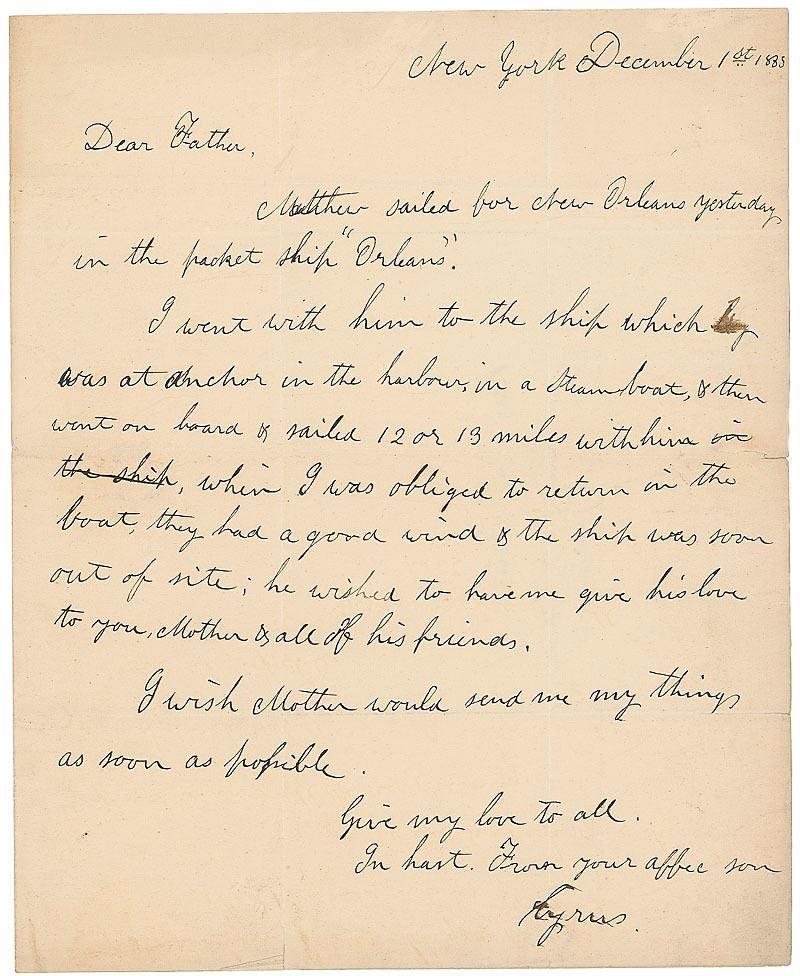 New York December 1st 1835
Dear Father,
Matthew sailed for New Orleans yesterday
in the packet ship "Orleans".
I went with him to the ship which lay
was at anchor in the harbour, in a Steam boat, & then
went on board & sailed 12 or 13 miles with him in
the ship, when I was obliged to return in the
boat, they had a good wind & the ship was soon
out of site; he wished to have me give his love
to you, Mother & all of his friends.
I wish Mother would send me my things
as soon as possible.
Give my love to all.
In hast. From your affec son
Cyrus.